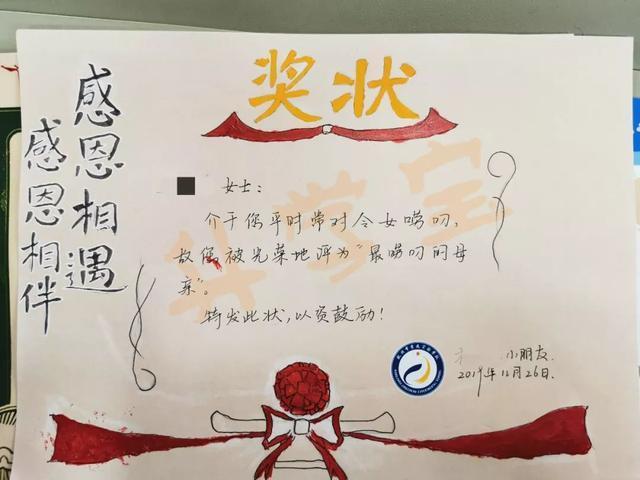 奖状
感恩相遇
感恩相伴
女士：
介于您平时常对令女唠叨，
故您被光荣地评为“最唠叨的母
亲”。
特发此状，以资鼓励！
小朋友
2019年12月26日.